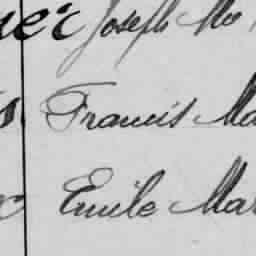 ner Joseph Mo
s Francis Ma
c Emile Mar